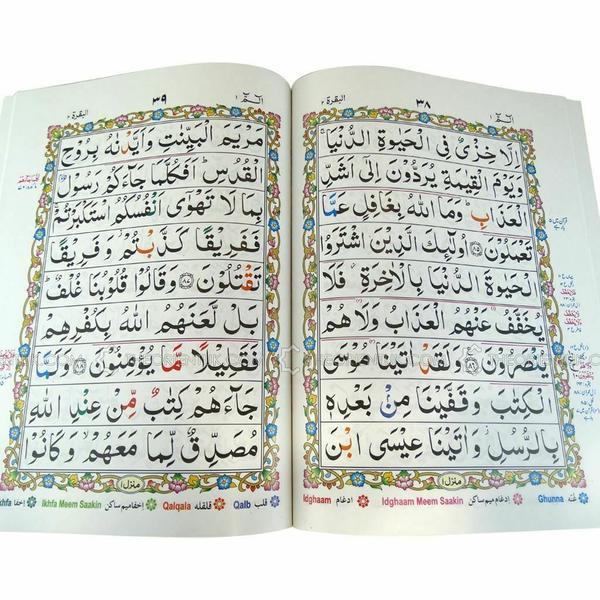 الٓمّٓ ١
٣٨
البقرة ٢
اِلَّا خِزْىٌ فِى الْحَيٰوةِ الدُّنْيَاۚ
وَيَوْمَ الْقِيٰمَةِ يُرَدُّوْنَ اِلٰٓى اَشَدِّ
الْعَذَابِؕ وَمَا اللّٰهُ بِغَافِلٍ عَمَّا
تَعْمَلُوْنَ ﴿٨٥﴾ اُولٰٓئِكَ الَّذِيْنَ اشْتَرَوُا
الْحَيٰوةَ الدُّنْيَا بِالْاٰخِرَةِؗ فَلَا
يُخَفَّفُ عَنْهُمُ الْعَذَابُ وَلَا هُمْ
يُنْصَرُوْنَ ﴿٨٦﴾ وَلَقَدْ اٰتَيْنَا مُوْسَى
الْكِتٰبَ وَقَفَّيْنَا مِنْۢ بَعْدِهٖ
بِالرُّسُلِؗ وَاٰتَيْنَا عِيْسَى ابْنَ
منزل ١
Ghunna غنه
Idghaam Meem Saakin ادغام میم ساکن
Idghaam ادغام
الٓمّٓ ١
٣٩
البقرة ٢
مَرْيَمَ الْبَيِّنٰتِ وَاَيَّدْنٰهُ بِرُوْحِ
الْقُدُسِؕ اَفَكُلَّمَا جَآءَكُمْ رَسُوْلٌۢ
بِمَا لَا تَهْوٰٓى اَنْفُسُكُمُ اسْتَكْبَرْتُمْۚ
فَفَرِيْقًا كَذَّبْتُمْؗ وَفَرِيْقًا
تَقْتُلُوْنَ ﴿٨٧﴾ وَقَالُوْا قُلُوْبُنَا غُلْفٌؕ
بَلْ لَّعَنَهُمُ اللّٰهُ بِكُفْرِهِمْ
فَقَلِيْلًا مَّا يُؤْمِنُوْنَ ﴿٨٨﴾ وَلَمَّا
جَآءَهُمْ كِتٰبٌ مِّنْ عِنْدِ اللّٰهِ
مُصَدِّقٌ لِّمَا مَعَهُمْۙ وَكَانُوْا
منزل ١
Qalb قلب
Qalqala قلقله
Ikhfa Meem Saakin اخفا میم ساکن
khfa اخفا